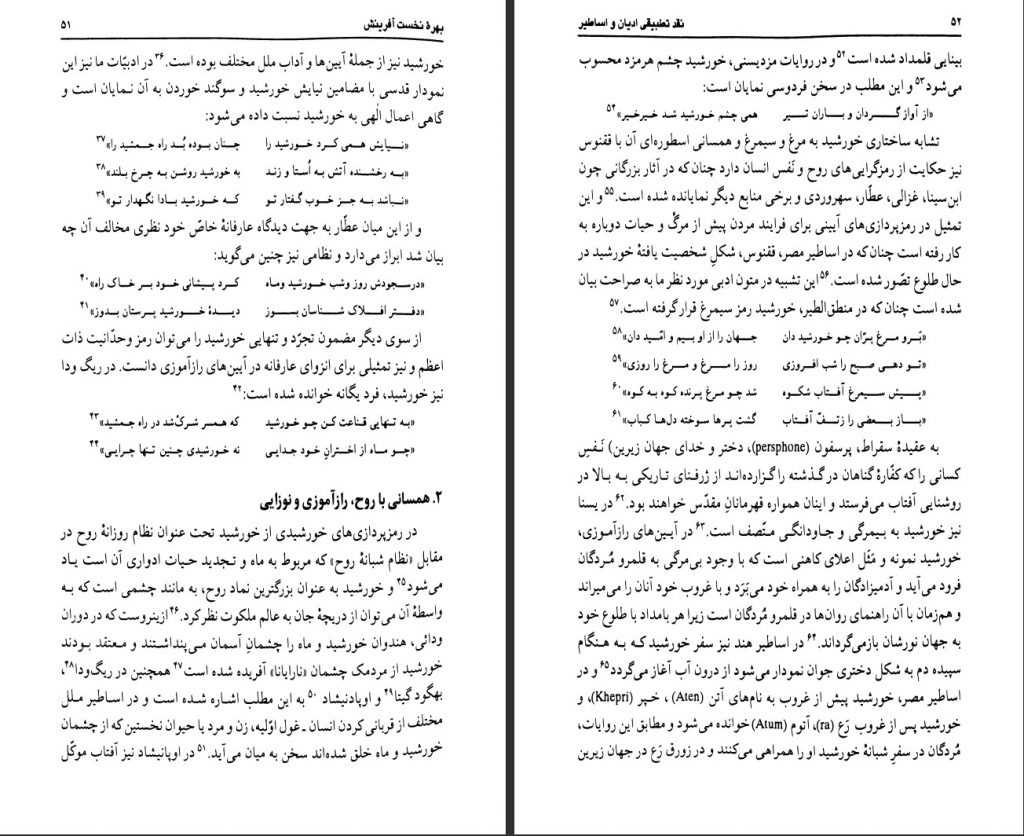 بهرهٔ نخست آفرینش ۵۱
خورشید نیز از جملهٔ آیین‌ها و آداب ملل مختلف بوده است.۳۶ در ادبیّات ما نیز این
نمودار قدسی با مضامین نیایش خورشید و سوگند خوردن به آن نمایان است و
گاهی اعمال الٰهی به خورشید نسبت داده می‌شود:
«نیایش همی کرد خورشید را چنان بوده بُد راه جمشید را»۳۷
«به رخشنده آتش به اُستا و زند به خورشید روشن به چرخ بلند»۳۸
«نباشد به جز خوب گفتار تو که خورشید بادا نگهدار تو»۳۹
و از این میان عطّار به جهت دیدگاه عارفانهٔ خاصّ خود نظری مخالف آن چه
بیان شد ابراز می‌دارد و نظامی نیز چنین می‌گوید:
«درسجودش روز وشب خورشید وماه کرد پیشانی خود بر خاک راه»۴۰
«دفتر افلاک شناسان بسوز دیدهٔ خورشید پرستان بدوز»۴۱
از سوی دیگر مضمون تجرّد و تنهایی خورشید را می‌توان رمز وحدّانیت ذات
اعظم و نیز تمثیلی برای انزوای عارفانه در آیین‌های رازآموزی دانست. در ریگ ودا
نیز خورشید، فرد یگانه خوانده شده است:۴۲
«به تنهایی قناعت کن چو خورشید که همسر شرک‌شد در راه جمشید»۴۳
«چو ماه از اخترانِ خود جدایی نه خورشیدی چنین تنها چرایی»۴۴
۲. همسانی با روح، رازآموزی و نوزایی
در رمزپردازی‌های خورشیدی از خورشید تحت عنوان نظام روزانهٔ روح در
مقابل «نظام شبانهٔ روح» که مربوط به ماه و تجدید حیات ادواری آن است یاد
می‌شود۴۵ و خورشید به عنوان بزرگترین نماد روح، به مانند چشمی است که به
واسطهٔ آن می‌توان از دریچهٔ جان به عالم ملکوت نظر کرد.۴۶ ازینروست که در دوران
ودائی، هندوان خورشید و ماه را چشمانِ آسمان می‌پنداشتند و معتقد بودند
خورشید از مردمک چشمان «نارایانا» آفریده شده است۴۷ همچنین در ریگ‌ودا۴۸،
بهگود گیتا۴۹ و اوپادنیشاد ۵۰ به این مطلب اشاره شده است و در اساطیر ملل
مختلف از قربانی کردن انسان ـ غول اوّلیه، زن و مرد یا حیوان نخستین که از چشمان
خورشید و ماه خلق شده‌اند سخن به میان می‌آید.۵۱ در اوپانیشاد نیز آفتاب موکّل
۵۲ نقد تطبیقی ادیان و اساطیر
بینایی قلمداد شده است۵۲ و در روایات مزدیسنی، خورشید چشم هرمزد محسوب
می‌شود۵۳ و این مطلب در سخن فردوسی نمایان است:
«از آواز گردان و باران تیر همی چشم خورشید شد خیرخیر»۵۴
تشابه ساختاری خورشید به مرغ و سیمرغ و همسانی اسطوره‌ای آن با ققنوس
نیز حکایت از رمزگرایی‌های روح و نَفس انسان دارد چنان که در آثار بزرگانی چون
ابن‌سینا، غزالی، عطّار، سهروردی و برخی منابع دیگر نمایانده شده است.۵۵ و این
تمثیل در رمزپردازی‌های آیینی برای فرایند مردن پیش از مرگ و حیات دوباره به
کار رفته است چنان که در اساطیر مصر، ققنوس، شکلِ شخصیت یافتهٔ خورشید در
حال طلوع تصّور شده است.۵۶ این تشبیه در متون ادبی مورد نظر ما به صراحت بیان
شده است چنان که در منطق‌الطیر، خورشید رمز سیمرغ قرار گرفته است.۵۷
«بَرو مرغ پرّان چو خورشید دان جهان را از او بیم و امّید دان»۵۸
«تو دهی صبح را شب افروزی روز را مرغ و مرغ را روزی»۵۹
«پیش سیمرغ آفتاب شکوه شد چو مرغ پرنده کوه به کوه»۶۰
«باز بعضی را زتفّ آفتاب گشت پرها سوخته دل‌ها کباب»۶۱
به عقیدهٔ سقراط، پرسفون (persphone)، دختر و خدای جهان زیرین) نَفسِ
کسانی را که کفّارهٔ گناهان درگذشته را گزارده‌اند از ژرفنای تاریکی به بالا در
روشنایی آفتاب می‌فرستد و اینان همواره قهرمانانِ مقدّس خواهند بود.۶۲ در یسنا
نیز خورشید به بیمرگی و جاودانگی متّصف است.۶۳ در آیین‌های رازآموزی،
خورشید نمونه و مَثَل اعلای کاهنی است که با وجود بی‌مرگی به قلمرو مُردگان
فرود می‌آید و آدمیزادگان را به همراه خود می‌بَرَد و با غروب خود آنان را می‌میراند
و هم‌زمان با آن راهنمای روان‌ها در قلمرو مُردگان است زیرا هر بامداد با طلوع خود
به جهان نورشان بازمی‌گرداند.۶۴ در اساطیر هند نیز سفر خورشید که به هنگام
سپیده دم به شکل دختری جوان نمودار می‌شود از درون آب آغاز می‌گردد۶۵ و در
اساطیر مصر، خورشید پیش از غروب به نام‌های آتن (Aten) ، خپر (Khepri)، و
خورشید پس از غروب رَع (ra)، آتوم (Atum) خوانده می‌شود و مطابق این روایات،
مُردگان در سفرِ شبانهٔ خورشید او را همراهی می‌کنند و در زورق رَع در جهان زیرین